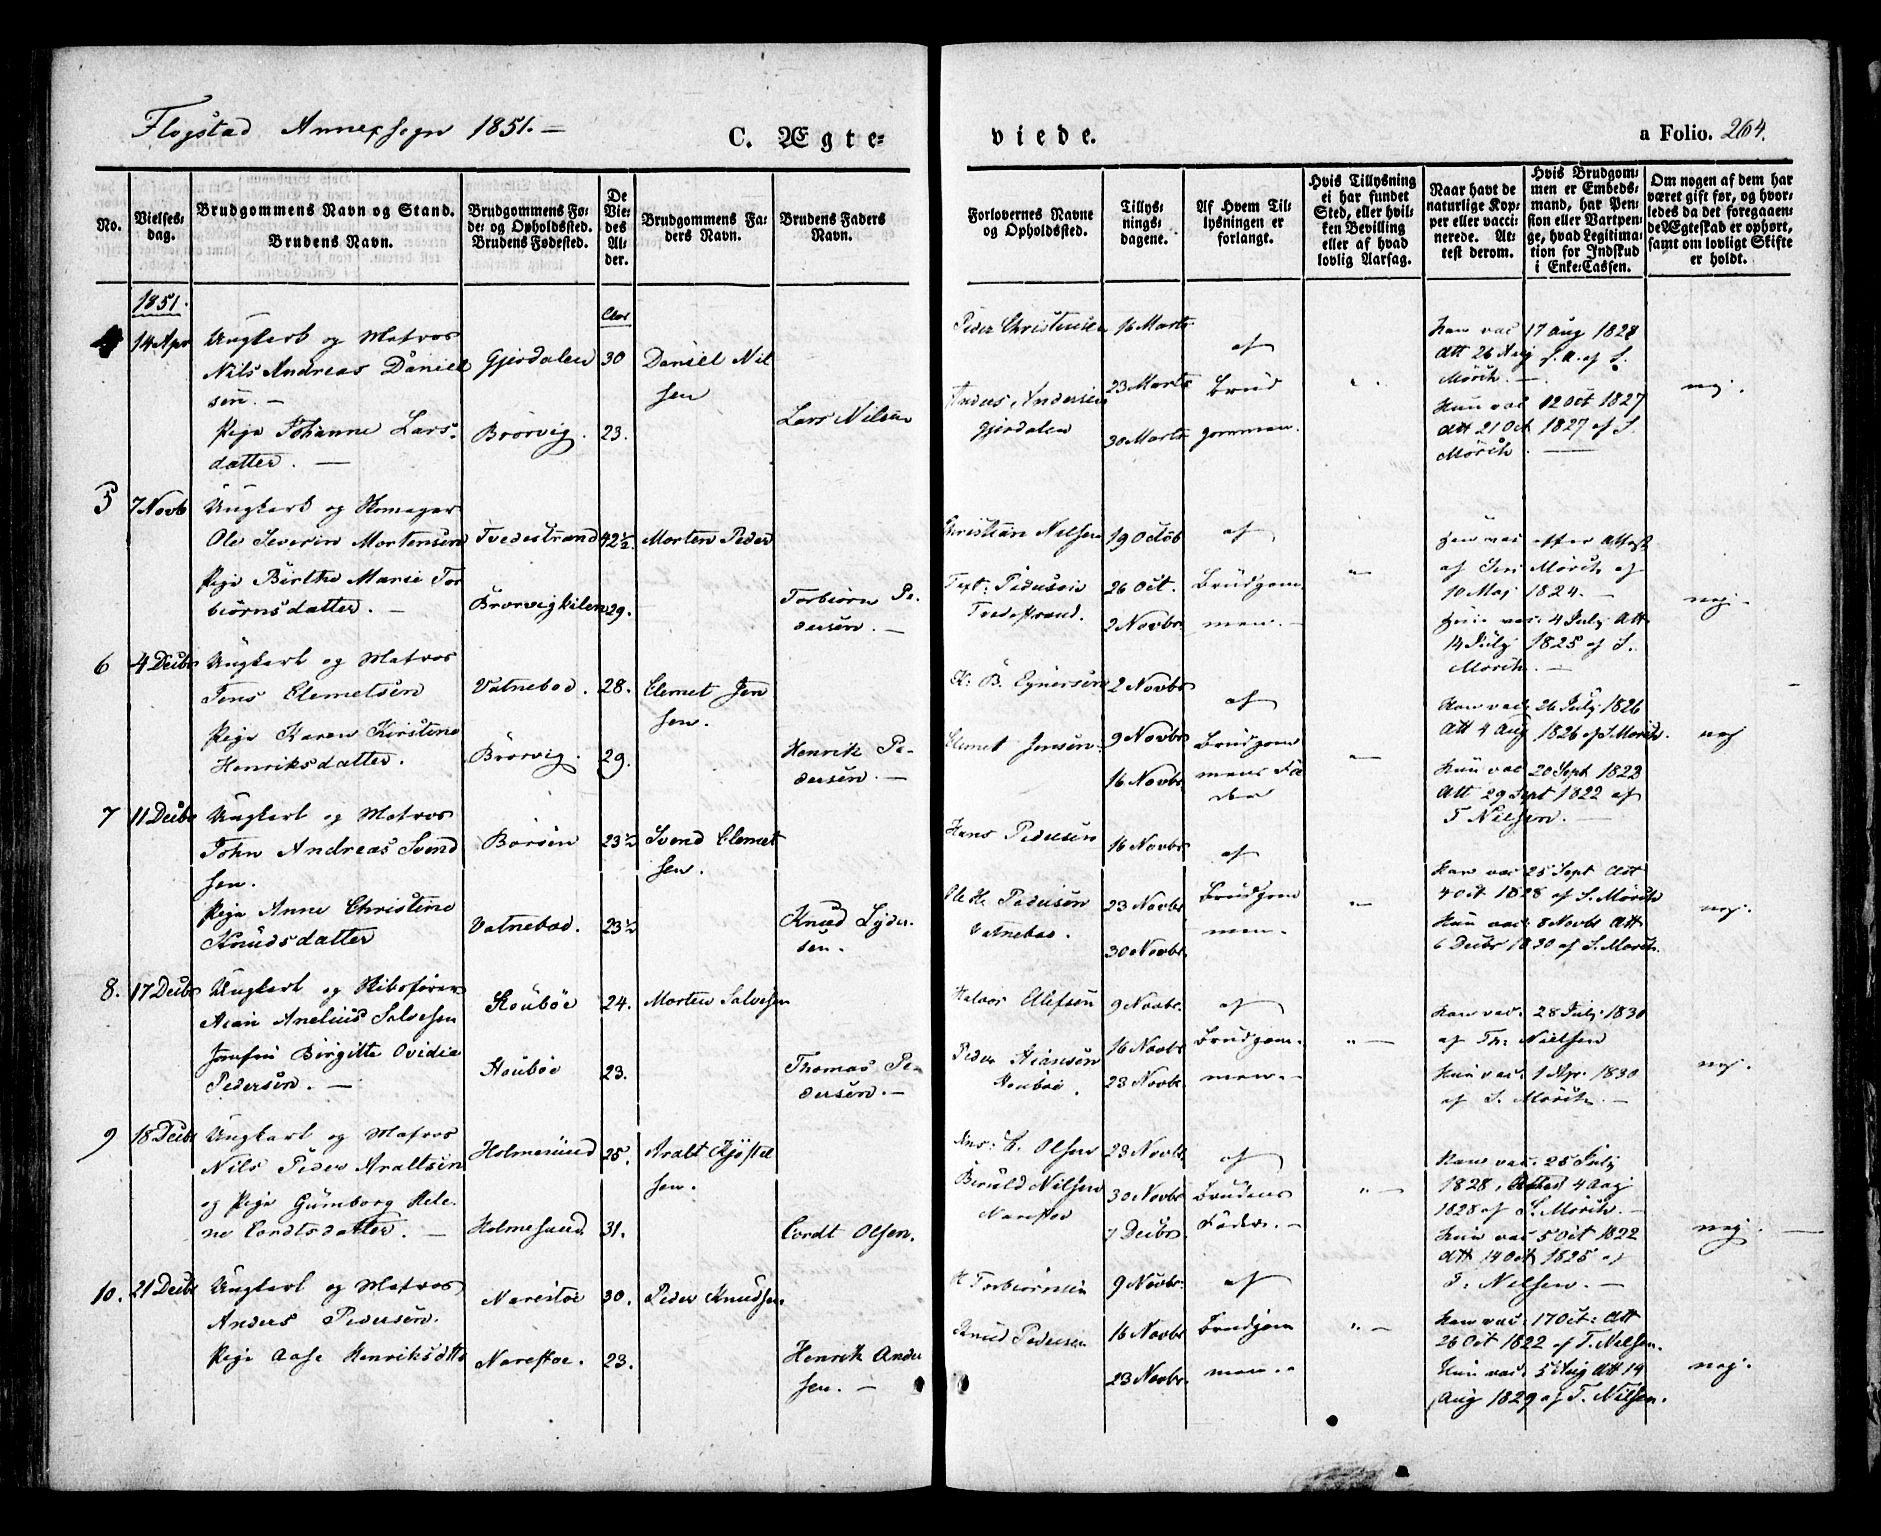 Flogstad Annexsogn 1851. —
C. Ægte-
viede.
a Folio. 264.
No.
Vielses-
dag.
Brudgommens Navn og Stand.
Brudens Navn.
Brudgommens Fø-
de- og Opholdssted.
Brudens Fødested.
De
Vie-
des
Al-
der.
Brudgommens Fa-
ders Navn.
Brudens Faders
Navn.
Forlovernes Navne
og Opholdssted.
Tillys-
nings-
dagene.
Af Hvem Til-
lysningen er
forlangt.
Hvis Tillysning
ei har fundet
Sted, eller hvil-
ken Bevilling
eller af hvad
lovlig Aarsag.
Naar havt de
naturlige Kop-
per eller vacci-
nerede. At-
test derom.
Hvis Brudgom-
men er Embeds-
mand, har Pen-
sion eller Vartpen-
ge, hvad Legitima-
tion for Indskud
i Enke-Cassen.
Om nogen af dem har
været gift før, og hvor-
ledes da det foregaaen-
de Ægteskab er ophørt,
samt om lovligt Skifte
er holdt.
1851.
Aar
4
14 Apr
Ungkarl og Matros
Nils Andreas Daniel
sen. —
Pige Johanne Lars-
datter. —
Gjerdalen
Brörvig.
30
23.
Daniel Nil
sen
Lars Nilsen
Peder Christensen
Anders Andersen
Gjerdalen
16 Marts
23 Marts
30 Marts
af
Brud
gommen.
Han vac 17 Aug 1828
Att 26 Aug s. A. af S.
Mörch. —
Hun vac 12 Oct 1827
Att 21 Oct 1827 af S.
Mörch —
nej.
5
7 Novb
Ungkarl og
Ole Severin Mortensen
Pige Birthe Marie Tor
biörnsdatter. —
Tvedestrand
Brörvigkilen
42½.
29.
Morten Peder
Torbiörn Pe-
dersen. —
Christian Nilsen
Pedersen
Tvedestrand.
19 Octob
26 Oct.
2 Novbr.
af
Brudgom
men. —
Han vac efter Attest
af Mörch af
10 Maj 1824. —
Hun vac. 4 July Att
14 July 1825 af S.
Mörch. —
nej.
6
4 Decbr
Ungkarl og Matros
Jens Clemetsen
Pige Karen Kirstine
Henriksdatter.
Vatnebod.
Brörvig.
28.
29.
Clemet Jen
sen.
Henrik Pe-
dersen. —
K. B. Egnersen
Clemet Jensen.
2 Novbr
9 Novbr
16 Novbr
af
Brudgom
mens Fa
der
Han vac. 26 July 1826
Att 4 Aug 1826 af S. Mörch.
Hun vac 20 Sept 1823
Att 29 Sept 1822 af
T Nielsen. —
nej
7
11 Decbr
Ungkarl og Matros
John Andreas Svend
sen.
Pige Anne Christine
Knudsdatter
Börsön
Vatnebod.
23½
23½
Svend Clemet
sen.
Knud Lyder-
sen.
Hans Pedersen
Ole H. Pedersen
Vatnebod.
16 Novbr
23 Novbr
30 Novbr.
af
Brudgom
men. —
Han vac 25 Sept Att
4 Oct 1828 af S. Mörch
Hun vac. 8 Novbr Att
6 Decbr 1830 af S. Mörch.
nej.
8.
17 Decbr
Ungkarl og Skibsfører
Anelius Salvesen
Birgitte Ovidia
Pedersen. —
Skoubøe
24.
23.
Morten Salvesen
Thomas Pe-
dersen. —
Halvor Olefsen
Peder
9 Novbr.
16 Novbr
23 Novbr.
af
Brudgom-
men. —
Han vac. 28 July 1830
af Th: Nielsen
Hun vac. 1 Apr. 1830
af S. Mörch —
nej.
9
18 Decbr
Ungkarl og Matros
Nils Peder Araltsen
og Pige Gumborg Hele-
ne Cordtsdatter. —
Holmesund
Holmesund
25.
31.
Aralt Kjøstel
sen.
Cordt Olsen.
Olsen
Beruld Nilsen
Narestøe
23 Novbr
30 Novbr
7 Decbr.
af
Brudens
Fader. —
Han vac. 25 July
1828, Attest 4 Aug
1828 af S. Mörch. —
Hun vac 5 Oct 1822
Att 14 Oct 1825 af
T. Nelsen. —
nej.
10.
21 Decbr
Ungkarl og Matros
Anders Pedersen.
Pige Aase Henriksdttr
Narestøe
Narestøe.
30.
23.
Peder Knudsen
Henrik Ander
sen. —
Torbiörnsen
Knud Pedersen
9 Novbr.
16 Novbr
23 Novbr.
af
Brudgom
men.
Han vac. 17 Oct. Att
26 Oct 1822 af T. Nelsen.
Hun vac. 5 Aug Att 14
Aug 1829 af T. Nilsen.
nej.